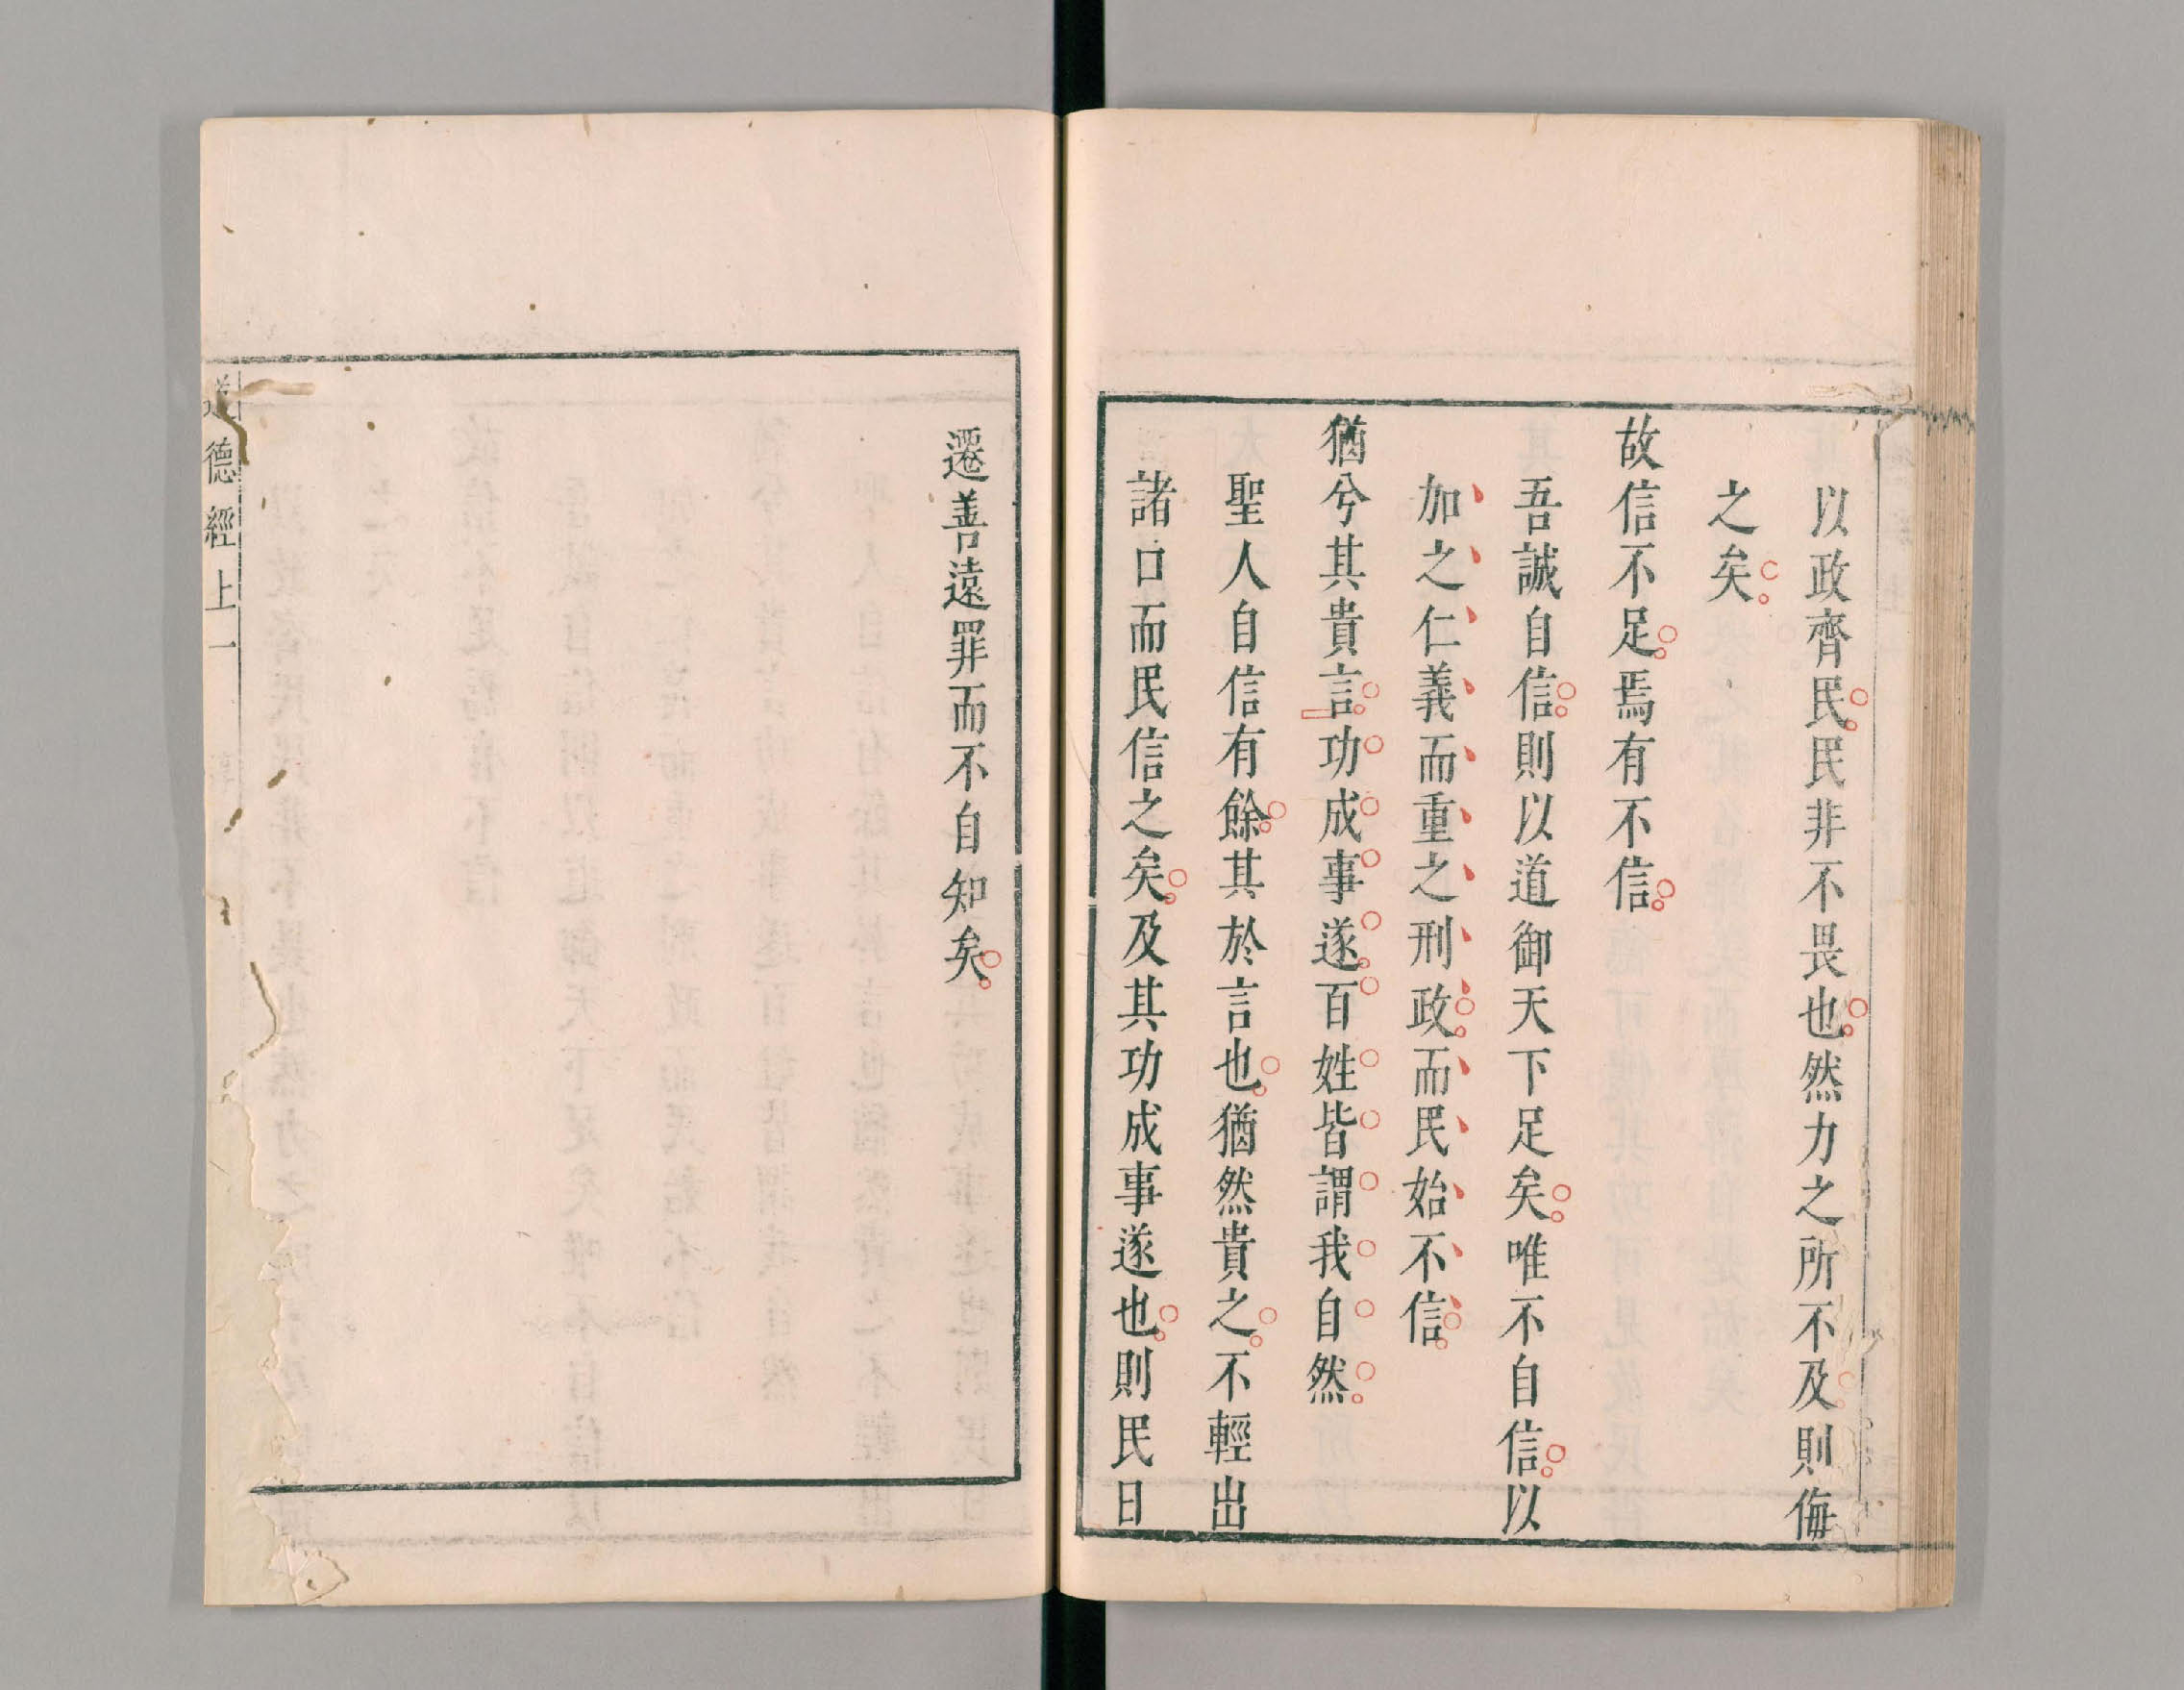 以政齊民民非不畏也然力之所不及則侮
之矣
故信不足焉有不信
吾誠自信則以道御天下足矣唯不自信以
加之仁義而重之刑政而民始不信
猶兮其貴言功成事遂百姓皆謂我自然
聖人自信有餘其於言也猶然貴之不輕出
諸口而民信之矣及其功成事遂也則民日
遷善遠罪而不自知矣
道德經上一